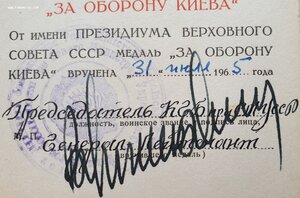 „ЗА ОБОРОНУ КИЕВА"
От имени ПРЕЗИДИУМА ВЕРХОВНОГО
СОВЕТА СССР МЕДАЛЬ „ЗА ОБОРОНУ
КИЕВА" ВРУЧЕНА „31" июля 1965 года
Председатель КГБ при СМ УССР
должность, воинское звание, подпись лица,
М. П. Генерал-Лейтенант